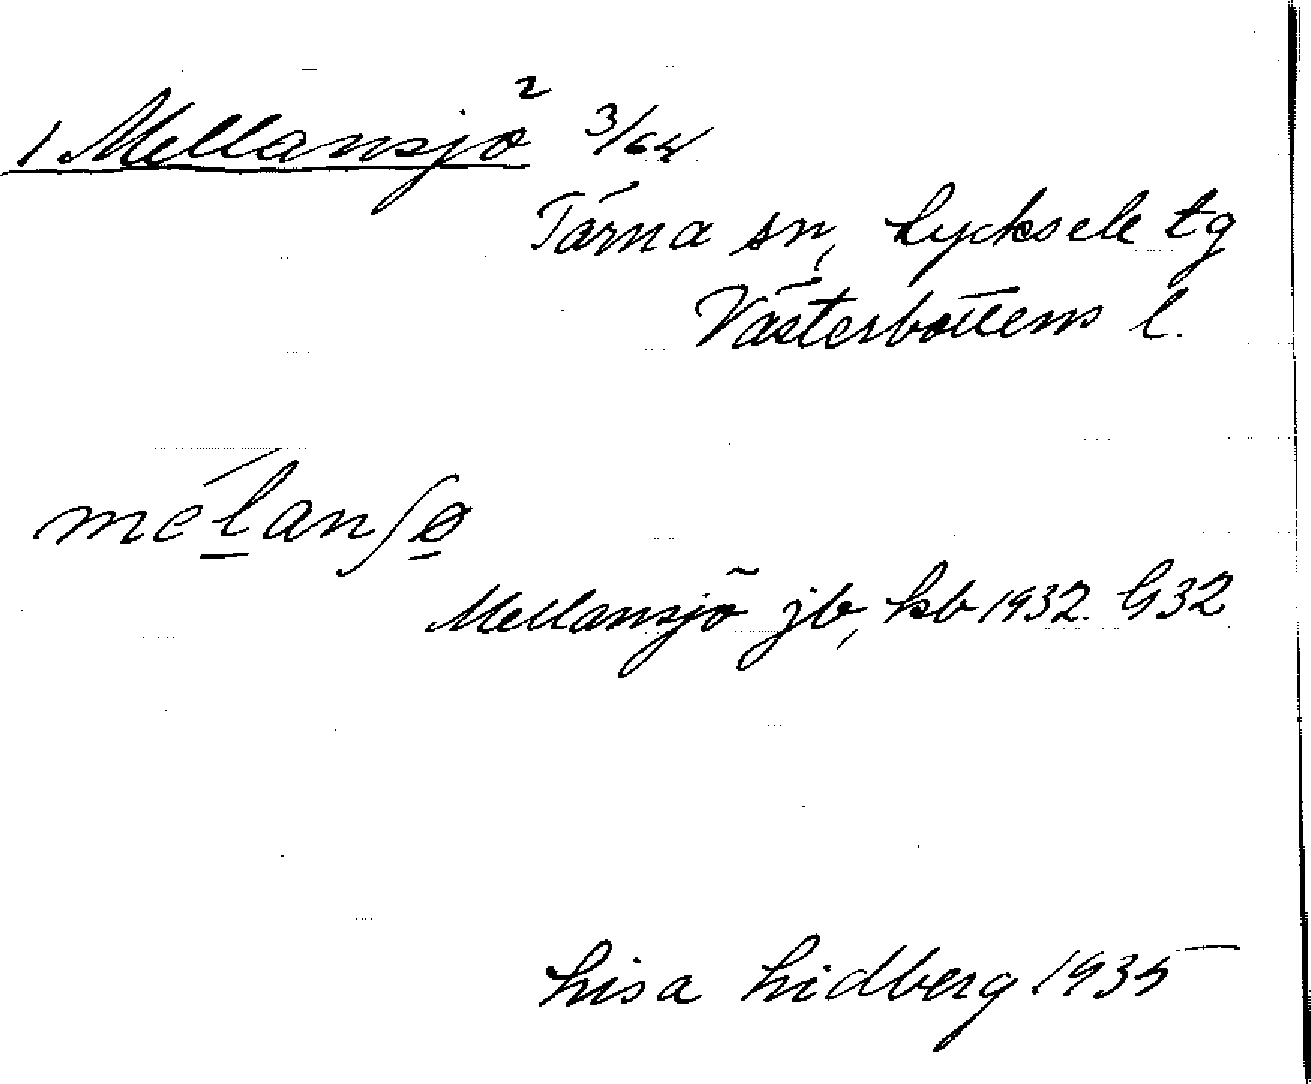 1 Mellansjö² 3/64
Tärna sn, Lycksele tg
Västerbottens l.
mélanʃø
Mellansjö jb, kb 1932 G32
Lisa Lidberg 1935